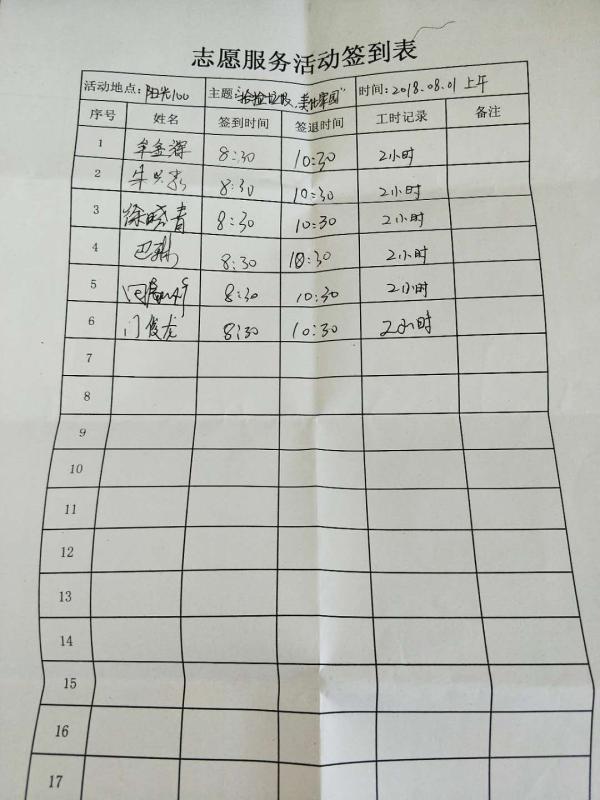 志愿服务活动签到表
活动地点：阳光100 主题："捡捡垃圾，美化家园" 时间：2018.08.01 上午
序号 姓名 签到时间 签退时间 工时记录 备注
1 牟金辉 8:30 10:30 2小时
2 8:30 10:30 2小时
3 徐晓青 8:30 10:30 2小时
4 8:30 10:30 2小时
5 8:30 10:30 2小时
6 门俊龙 8:30 10:30 2小时
7
8
9
10
11
12
13
14
15
16
17